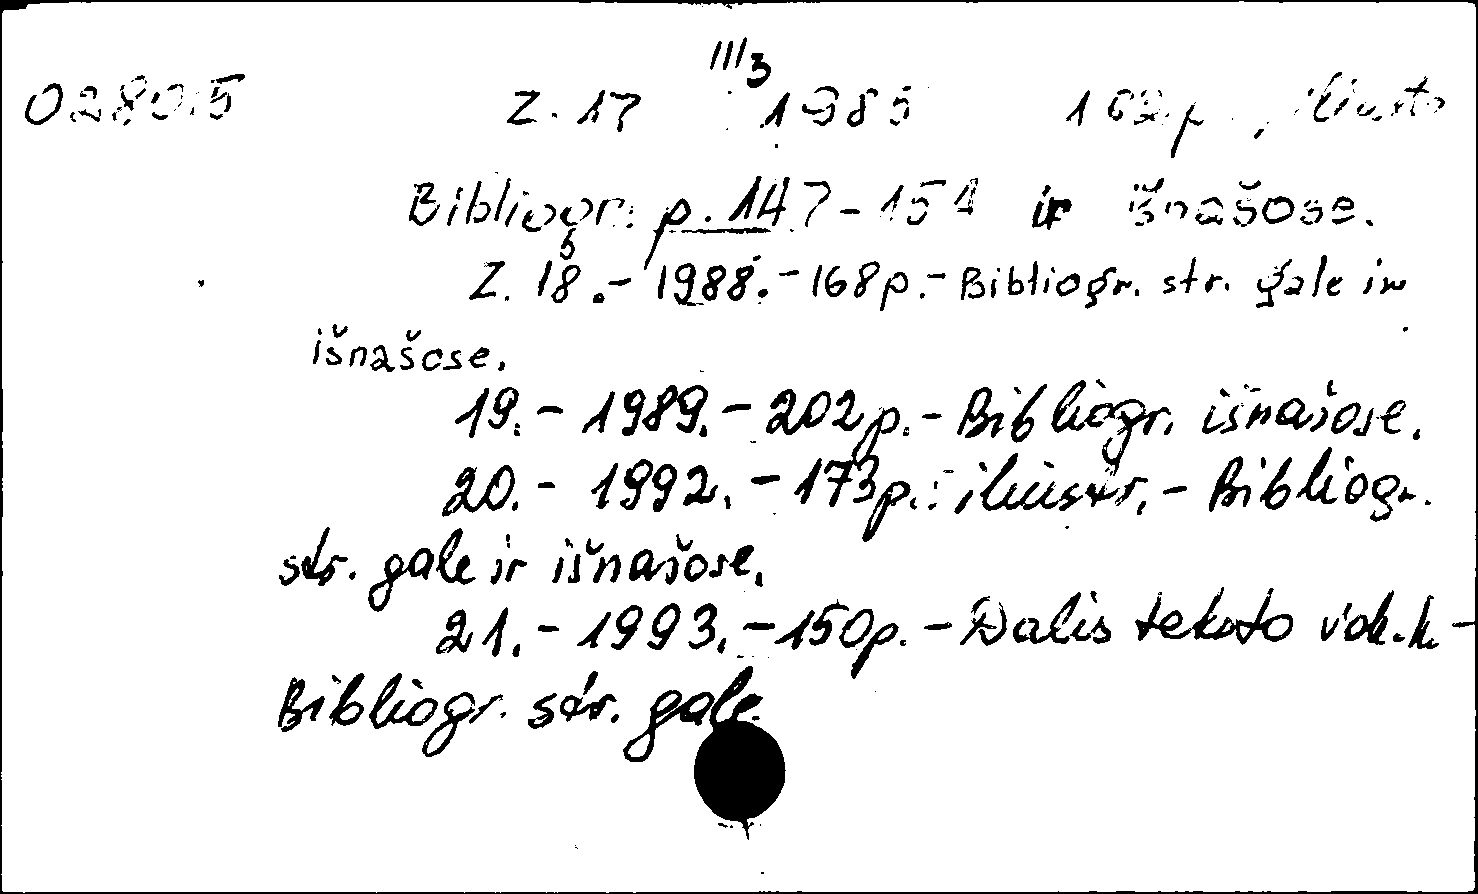 III/3
02805 Z. 17 1985 162p., iliustr.
Bibliogr. p. 147-154 ir išnašose.
Z. 18.- 1988.-168p.- Bibliogr. str. gale ir
išnašose.
19.- 1989.- 202p.- Bibliogr. išnašose.
20.- 1992.- 173p.: iliustr.- Bibliogr.
str. gale ir išnašose.
21.- 1993.-150p.- Dalis teksto vok.k.-
Bibliogr. str. gale.